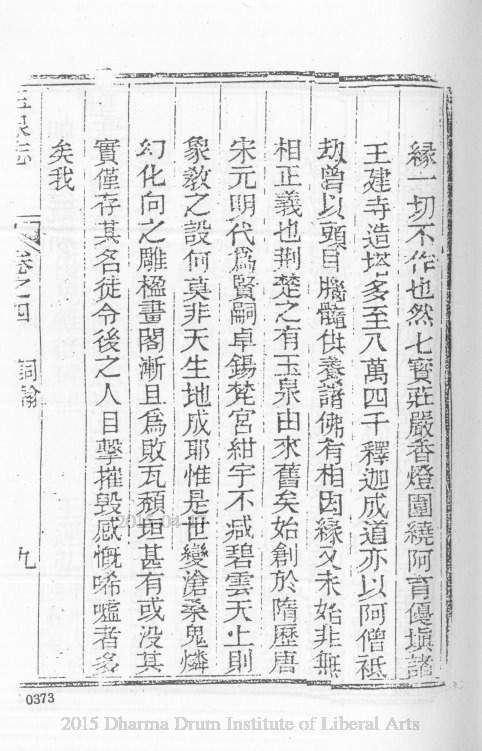 緣一切不作也然七寳莊嚴香燈圍繞阿育優塡諸
王建寺造塔多至八萬四千釋迦成道亦以阿僧祗
劫曾以頭目腦髓供養諸佛有相因緣又未始非無
相正義也荆楚之有玉泉由來舊矣始創於隋歷唐
宋元明代爲賢嗣卓錫梵宮紺宇不減碧雲天上則
象敎之設何莫非天生地成耶惟是世變滄桑鬼燐
幻化向之雕楹畫閣漸且爲敗瓦頽垣甚有或没其
實僅存其名徒令後之人目擊摧毀感慨唏噓者多
矣我
玉泉志
卷之四 詞翰 九
0373
2015 Dharma Drum Institute of Liberal Arts